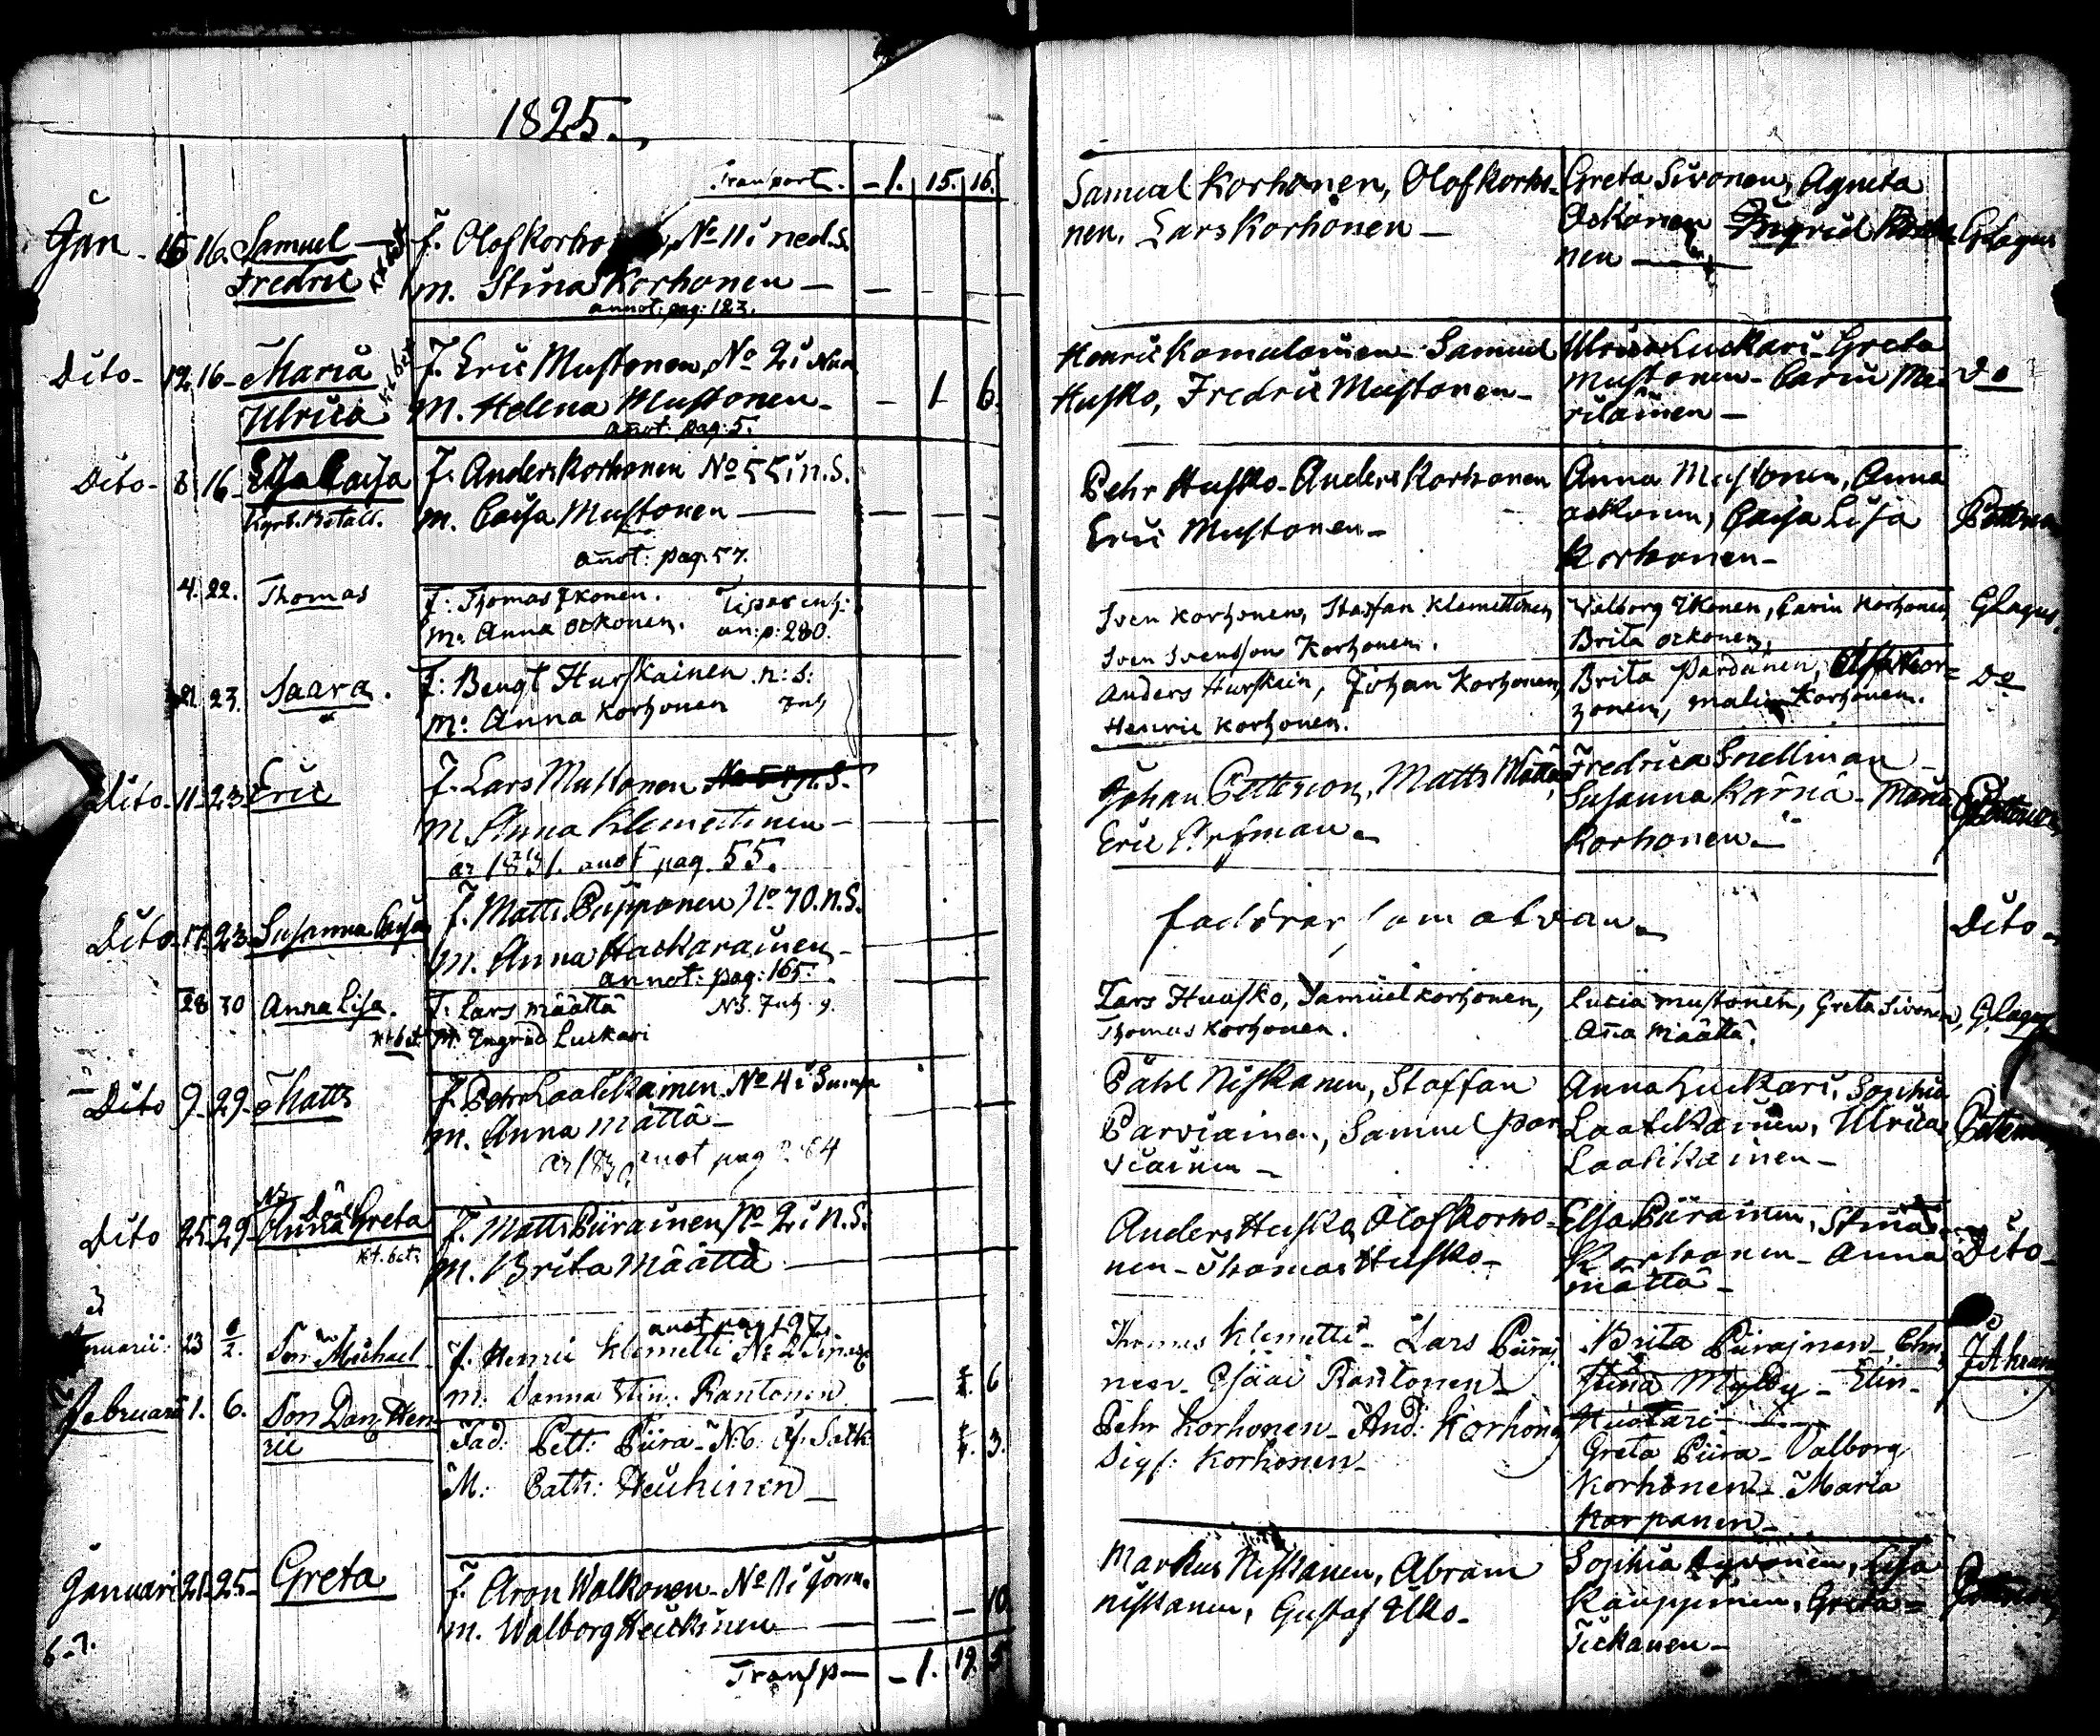 1825.
Transport. - 1. 15. 16.
Jan - 15 16. Samuel
Fredric
f. Olof Korho No 11 i ned. S.
m. Stina Korhonen -
annot: pag: 123.
Samuel Korhonen, Olof Korho-
nen. Lars Korhonen -
Greta Sivonen, Agneta
Ockonen Ingrid
nen
Glagus
Dito - 12. 16 - Maria
Ulrica
f. Eric Mustonen, No 2 i
m. Helena Mustonen - - 1 6.
anot: pag: 5.
Henric Komulainen - Samuel
Husko, Fredric Mustonen -
Ulrica Luckari - Greta
Mustonen - Carin Me-
riläinen -
Do
Dito - 8 16 - Elsa Caisa
Kyrk. Betalt.
f. Anders Korhonen No 55 i n. S.
m. Caisa Mustonen
anot: pag. 57.
Pehr Husko - Anders Korhonen
Eric Mustonen -
Anna Mustonen, Anna
ockonen, Caisa Lisa
Korhonen -
4. 22. Thomas
f: Thomas Ikonen.
m: Anna Ockonen. an: p: 280.
Sven Korhonen, Staffan Klemettinen
Sven Svensson Korhonen.
Valborg Ikonen, Carin Korhonen
Brita Ockonen,
Glagus.
21. 23. Saara.
f: Bengt Hurskainen n: S:
m: Anna Korhonen Inh
Anders Hurskain, Johan Korhonen,
Henric Korhonen.
Brita Pardanen, Elsa Kor-
honen, Malin Korhonen.
Do
Dito - 11 - 23 Eric
f. Lars Mustonen No 51 n. S.
m Anna Klemettinen -
år 1831. anot pag. 55.
Johan Petterson, Matts Mättä,
Eric
Fredrica Snellman -
Susanna Kärnä - Maria
Korhonen -
Petterson
Dito - 17. 23 - Susanna Caisa
f. Matts Pupponen No 70. n. S.
m. Anna Hackarainen -
annot: pag: 165.
faddrar som ofvan.
Dito -
28 30 Anna Lisa.
Kt bet.
f: Lars Määttä NS. Inh. 9.
m. Ingrid Luckari
Lars Huusko, Samuel Korhonen,
Thomas Korhonen.
Lucia Mustonen, Greta Sivonen,
Anna Määttä.
Glagus
Dito 9. 29 - Matts
f. Pehr Laatikainen No 4 i
m. Anna Mättä -
år 1830 anot pag 284
Påhl Niskanen, Staffan
Parviainen, Samuel Par
viainen -
Anna Luckari, Sophia
Laatikainen, Ulrica
Laatikainen -
Petterson
Dito 25. 29 - Anna Greta
Kt. bet:
f. Matts Piirainen No 2 i n. S.
m. Brita Määttä
Anders Husko, Olof Korho-
nen - Thomas Husko -
Elsa Piirainen, Stina
Korhonen - Anna
Mättä -
Dito -
anot pag 197.
23 6/2. Son Michael
f. Henric Klemetti No 2
m: Sanna Stin: Rantonen 6
Thomas Klemetti - Lars Piiraj
nen - Esaai Rantonen -
Brita Piirajnen -
Stina - Elin -
Huotari -
Februari 1. 6. Son Dan. Hen
ric
Fad: Pett: Piira - N. 6. 3.
M: Cath: Heikinen -
Pehr Korhonen - And: Korhonen
Sigf: Korhonen -
Greta Piira - Valborg
Korhonen - Maria
Karpanen -
Januari 21. 25 - Greta
f. Aron Walkonen - No 11 i
m. Walborg Heickinen - 10.
Markus Niskanen, Abram
Niskanen, Gustaf
Sophia Lyvonen, Lisa
Kauppinen, Greta
Tickanen -
6 7.
Transp - - 1. 19. 5